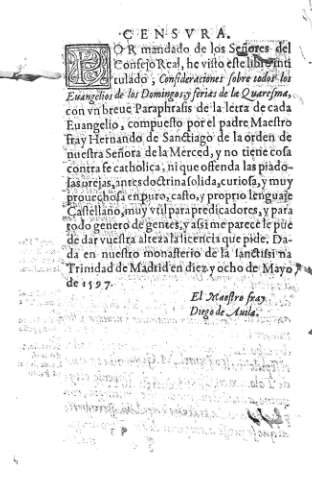 CENSVRA.
POR mandado de los Señores del
Consejo Real, he visto este libro inti
tulado, Consideraciones sobre todos los
Euangelios de los Domingos, y ferias de la Quaresma,
con vn breue Paraphrasis de la letra de cada
Euangelio, compuesto por el padre Maestro
fray Hernando de Sanctiago de la orden de
nuestra Señora de la Merced, y no tiene cosa
contra fe catholica, ni que ofenda las piado-
sas orejas, antes doctrina solida, curiosa, y muy
prouechosa en puro, casto, y proprio lenguaje
Castellano, muy vtil para predicadores, y para
todo genero de gentes, y assi me parece le pue
de dar vuestra alteza la licencia que pide. Da-
da en nuestro monasterio de la sanctissi na
Trinidad de Madrid en diez y ocho de Mayo
de 1597.
El Maestro fray
Diego de Auila.